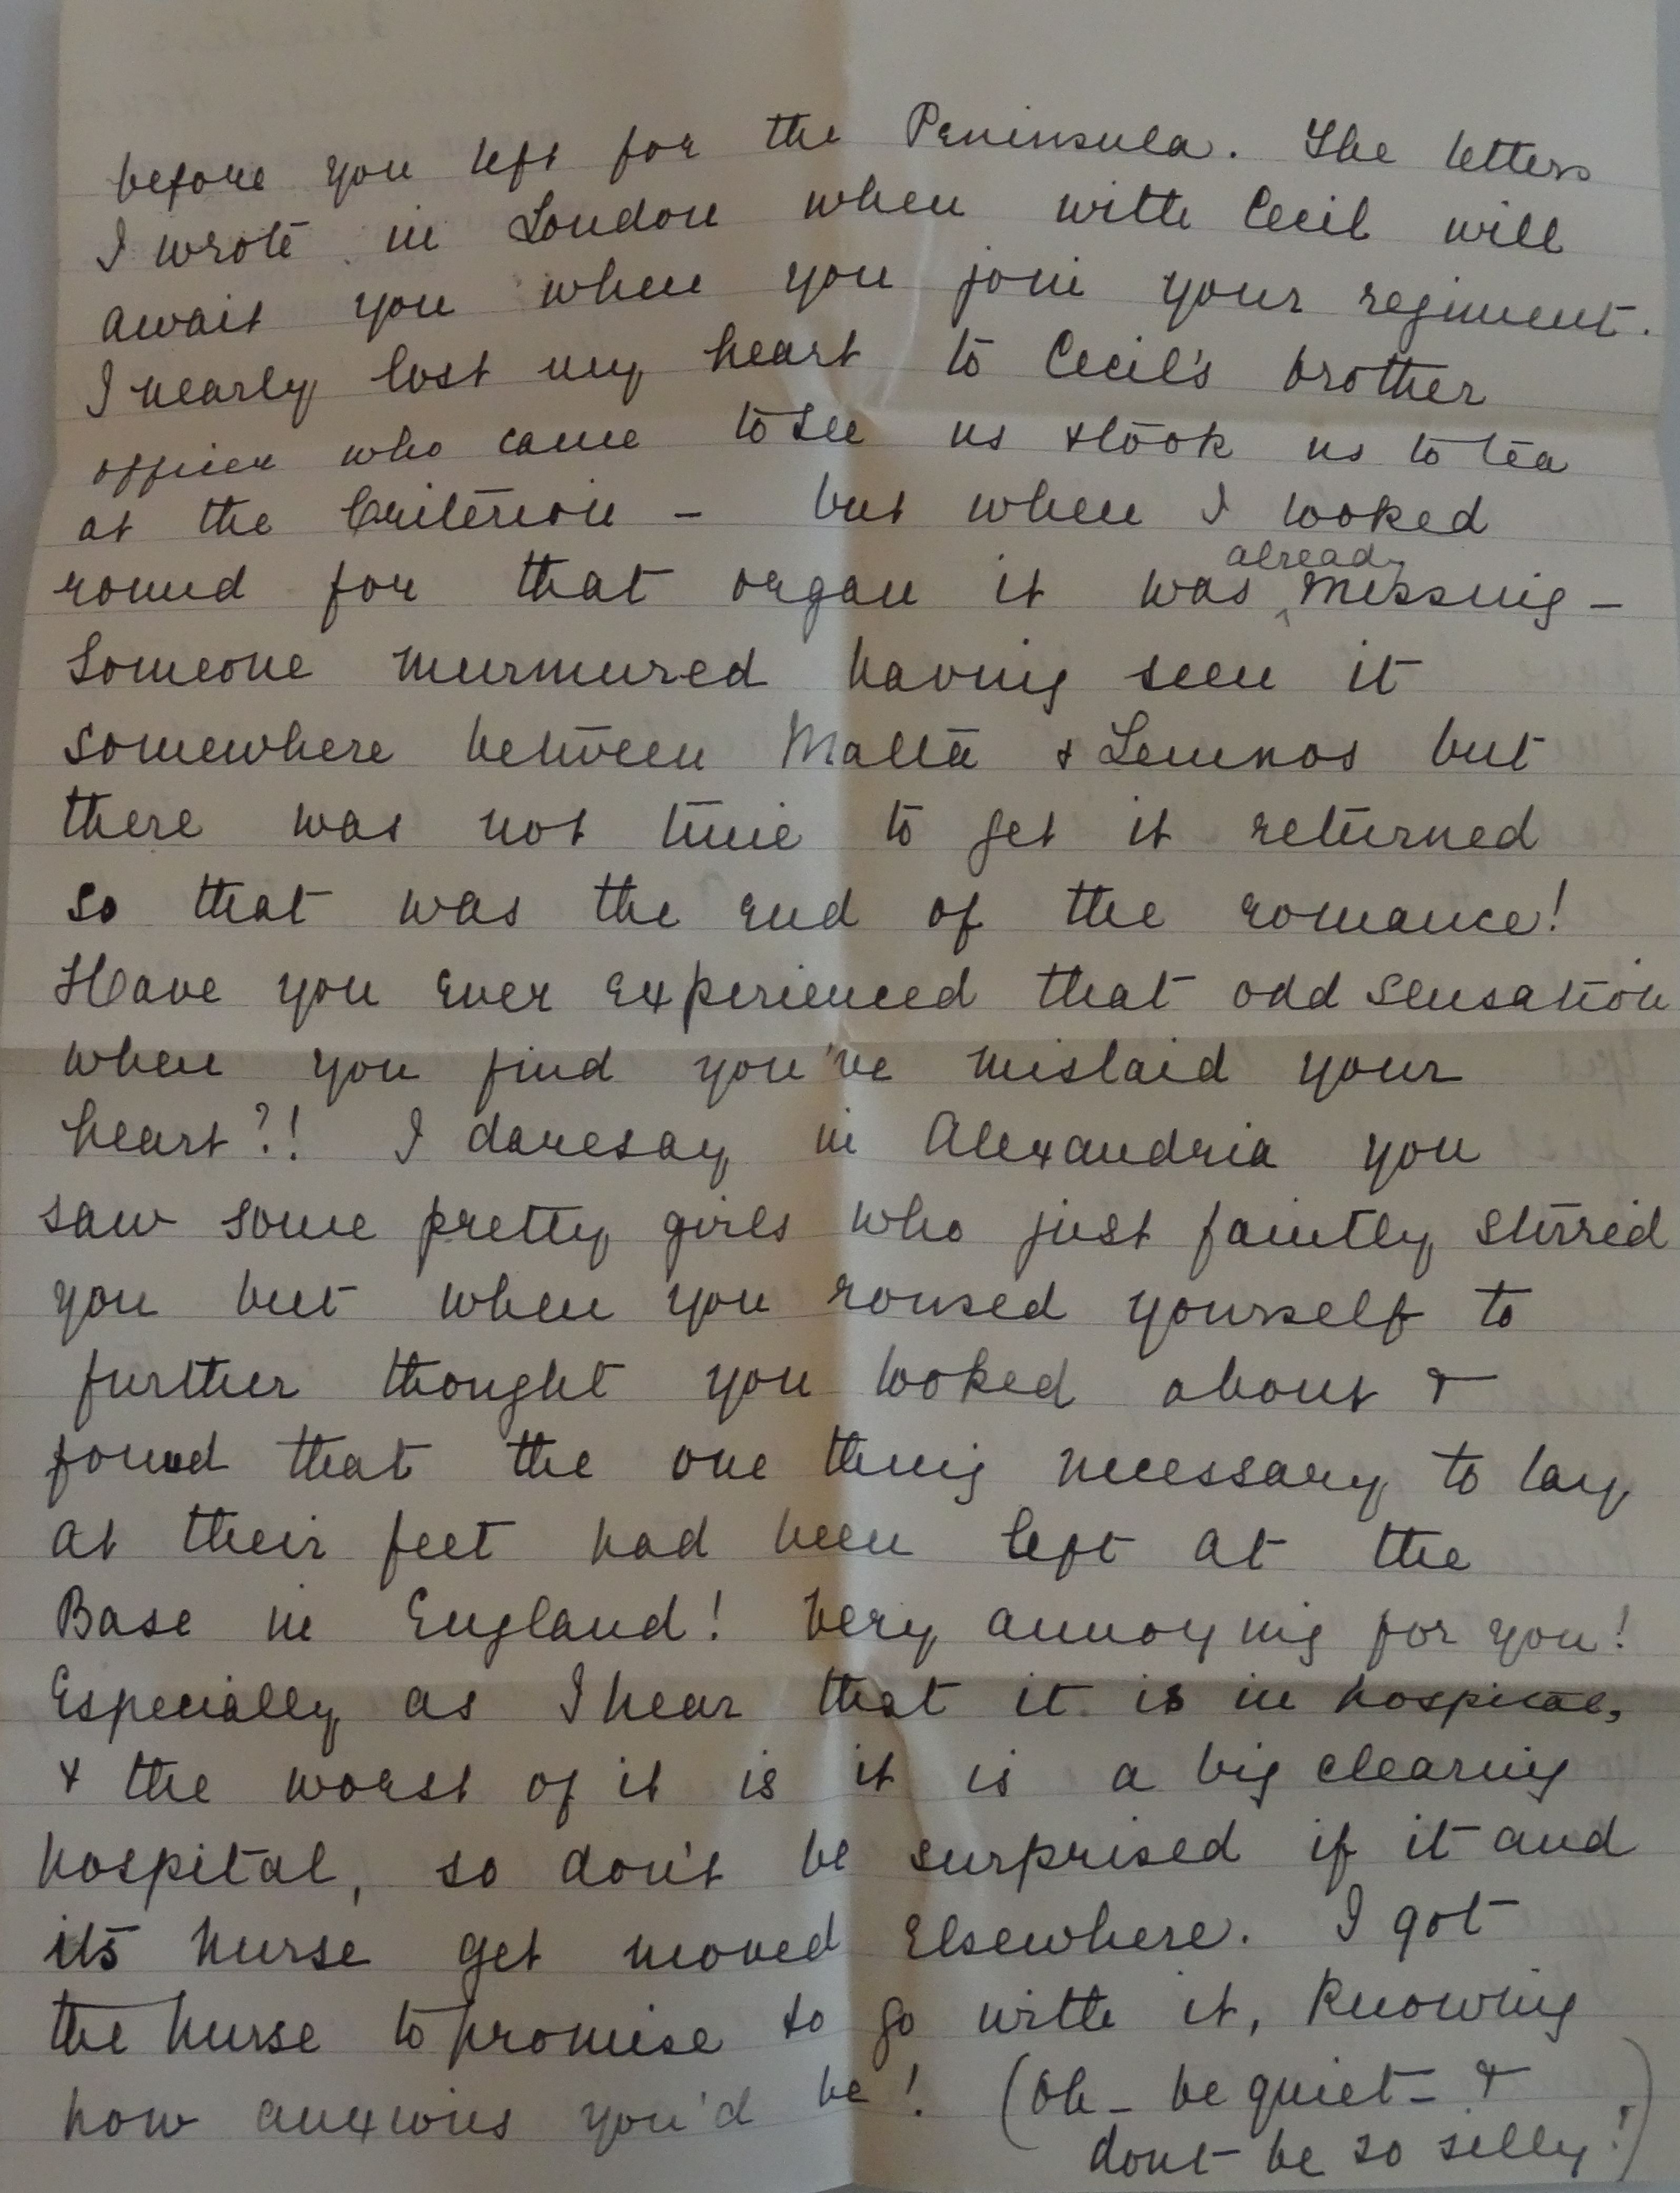 before you left for the Peninsula. The letters
I wrote in London when with Cecil will
await you when you join your regiment.
I nearly lost my heart to Cecil's brother
officer who came to see us & took us to tea
at the Criterion - but when I looked
already
round for that organ it was ^ missing -
Someone murmured having seen it
somewhere between Malta & Lemnos but
there was not time to get it returned
so that was the end of the romance!
Have you ever experienced that odd sensation
when you find you've mislaid your
heart?! I daresay in Alexandria you
saw some pretty girls who just faintly stirred
you but when you roused yourself to
further thought you looked about &
found that the one thing necessary to lay
at their feet had been left at the
Base in England! Very annoying for you!
Especially as I hear that it is in hospital,
& the worst of it is it is a big clearing
hospital, so don't be surprised if it and
its nurse get moved elsewhere. I got
the nurse to promise to go with it, knowing
how anxious you'd be! (Oh - be quiet - &
dont be so silly!)